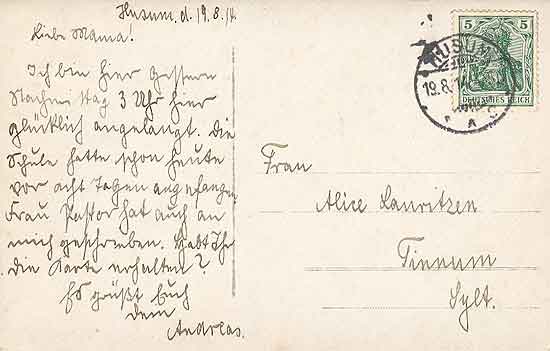 Husum, d. 19.8.14.
Liebe Mama!
Ich bin hier gestern
Nachmittag 3 Uhr hier
glücklich angelangt. Die
Schule hatte schon heute
vor acht Tagen angefangen.
Frau Pastor hat auch an
mich geschrieben. Habt Ihr
die Karte erhalten?
Es grüßt Euch
dem
Andreas.
5 5
DEUTSCHES REICH
HUSUM
19.8.14
C
Frau
Alice Lauritzen
Tinnum
Sylt.